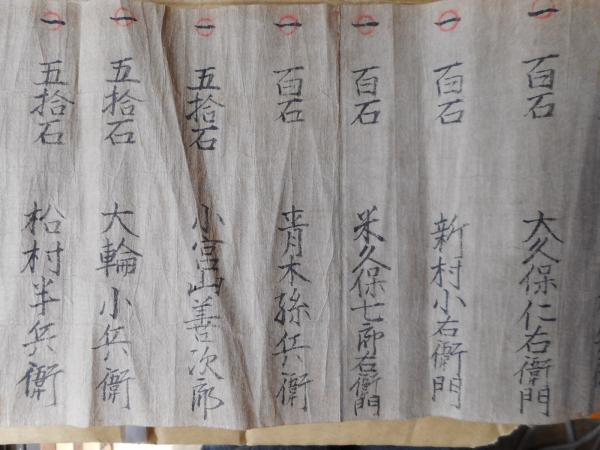 一 百石 大久保仁右衛門
一 百石 新村小右衛門
一 百石 米久保七郎右衛門
一 百石 青木孫兵衛
一 五拾石 小宮山善次郎
一 五拾石 大輪小兵衛
一 五拾石 松村半兵衛